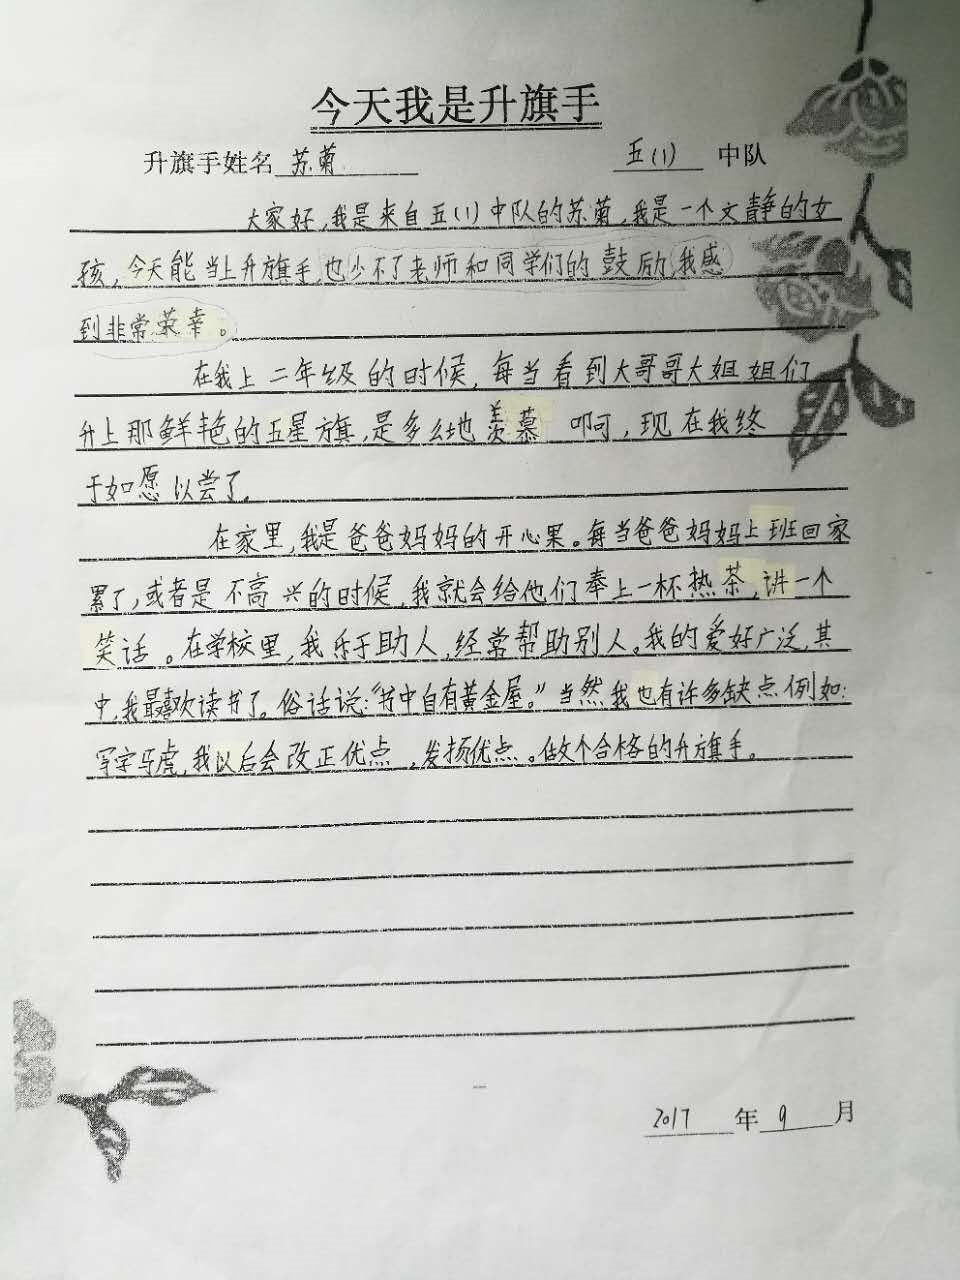 今天我是升旗手
升旗手姓名 苏菊 五(1) 中队
大家好,我是来自五(1)中队的苏菊,我是一个文静的女
孩,今天能当上升旗手,也少不了老师和同学们的鼓励,我感
到非常荣幸。
在我上二年级的时候,每当看到大哥哥大姐姐们
升上那鲜艳的五星旗,是多么地羡慕啊,现在我终
于如愿以尝了。
在家里,我是爸爸妈妈的开心果。每当爸爸妈妈上班回家
累了,或者是不高兴的时候,我就会给他们奉上一杯热茶,讲一个
笑话。在学校里,我乐于助人,经常帮助别人。我的爱好广泛,其
中,我最喜欢读书了。俗话说:“书中自有黄金屋。”当然我也有许多缺点例如:
写字马虎,我以后会改正优点,发扬优点。做个合格的升旗手。
2017 年 9 月